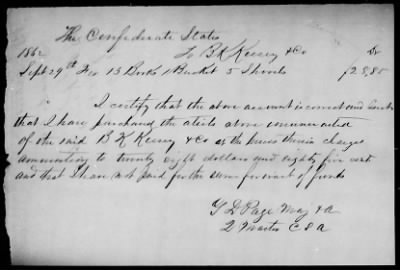 The Confederate States
1862 To B K Kersey & Co Dr
Sept 29th For 13 Books 1 Bucket 5 Shovels $28,85
I certify that the above account is correct and
that I have purchased the articles above enumerated
of the said B K Kersey & Co at the prices therein charged
amounting to twenty eight dollars and eighty five cents
and that I have not paid for the same for want of funds
Y D Page Maj & A
Q Master C S A